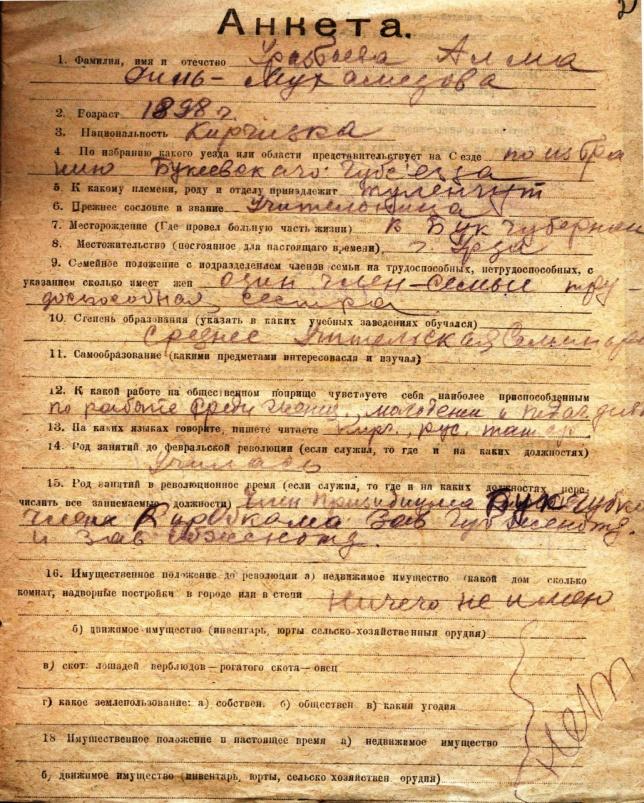 2
Анкета.
1. Фамилия, имя и отечество Уразбаева Алма
Динь-Мухамедова
2. Возраст 1898 г.
3. Национальность Киргизка
4. По избранию какого уезда или области представительствует на С езде по избра
нию Букеевского Губс'езда
5. К какому племени, роду и отделу принадлежит туленгут
6. Прежнее сословие и звание Учительница
7. Месторождение (Где провел большую часть жизни) в Бук губернии
8. Местожительство (постоянное для настоящего времени) г. Урда
9. Семейное положение с подразделением членов семьи на трудоспособных, нетрудоспособных, с
указанием сколько имеет жен один член-семьи тру-
доспособная сестра
10. Степень образования (указать в каких учебных заведениях обучался)
Среднее Учительская Семинария
11. Самообразование (какими предметами интересовася и взучал)
12. К какой работе на общественном поприще чувствуете себя наиболее приспособленным
по работе среди женщ, молодежи и
13. На каких языках говорите, пишете читаете Кирг., рус, татар
14. Род занятий до февральской революции (если служил, то где и на каких должностях)
Училась
15. Род занятий в революционное время (если служил, то где и на каких должностях пере
числить все занимаемые должности) Член Призидиума Бук Губко
член Киробкома Зав Губженотд.
и Зав обженотд.
16. Имущественное положение до революции а) недвижимое имущество (какой дом сколько
комнат, надворные постройки в городе или в степи Ничего не имею
б) движимое имущество (инвентарь, юрты сельско-хозяйственныя орудия)
в) скот: лошадей верблюдов—рогатого скота—овец
г) какое землепользование: а) собствен. б) обществен в) какия угодия
нет
18 Имущественное положение в настоящее время а) недвижимое имущество
б) движимое имущество (инвентарь, юрты, сельско хозяйствен орудия)